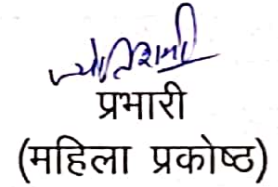 प्रभारी
(महिला प्रकोष्ठ)